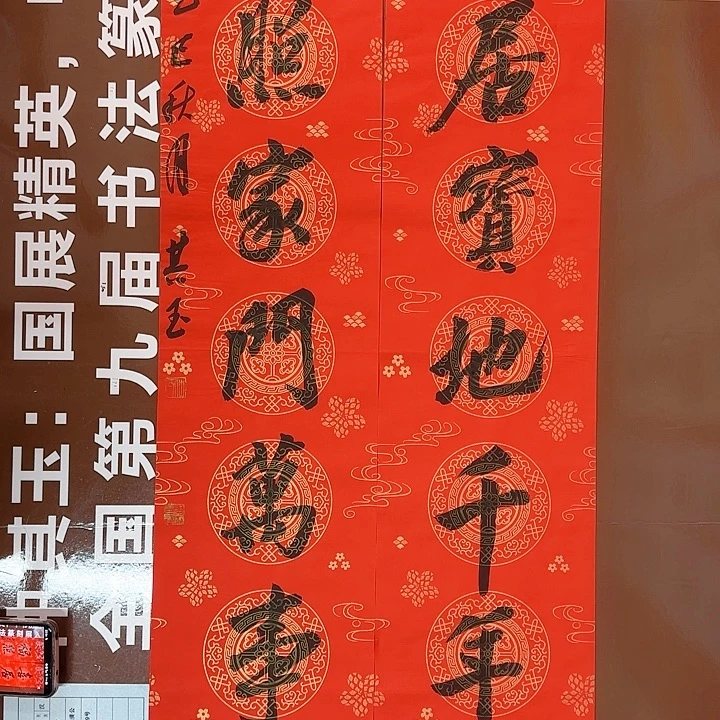 居寶地千年
家門萬事
巳秋月 其玉
其玉：国展精英，
全国第九届书法篆